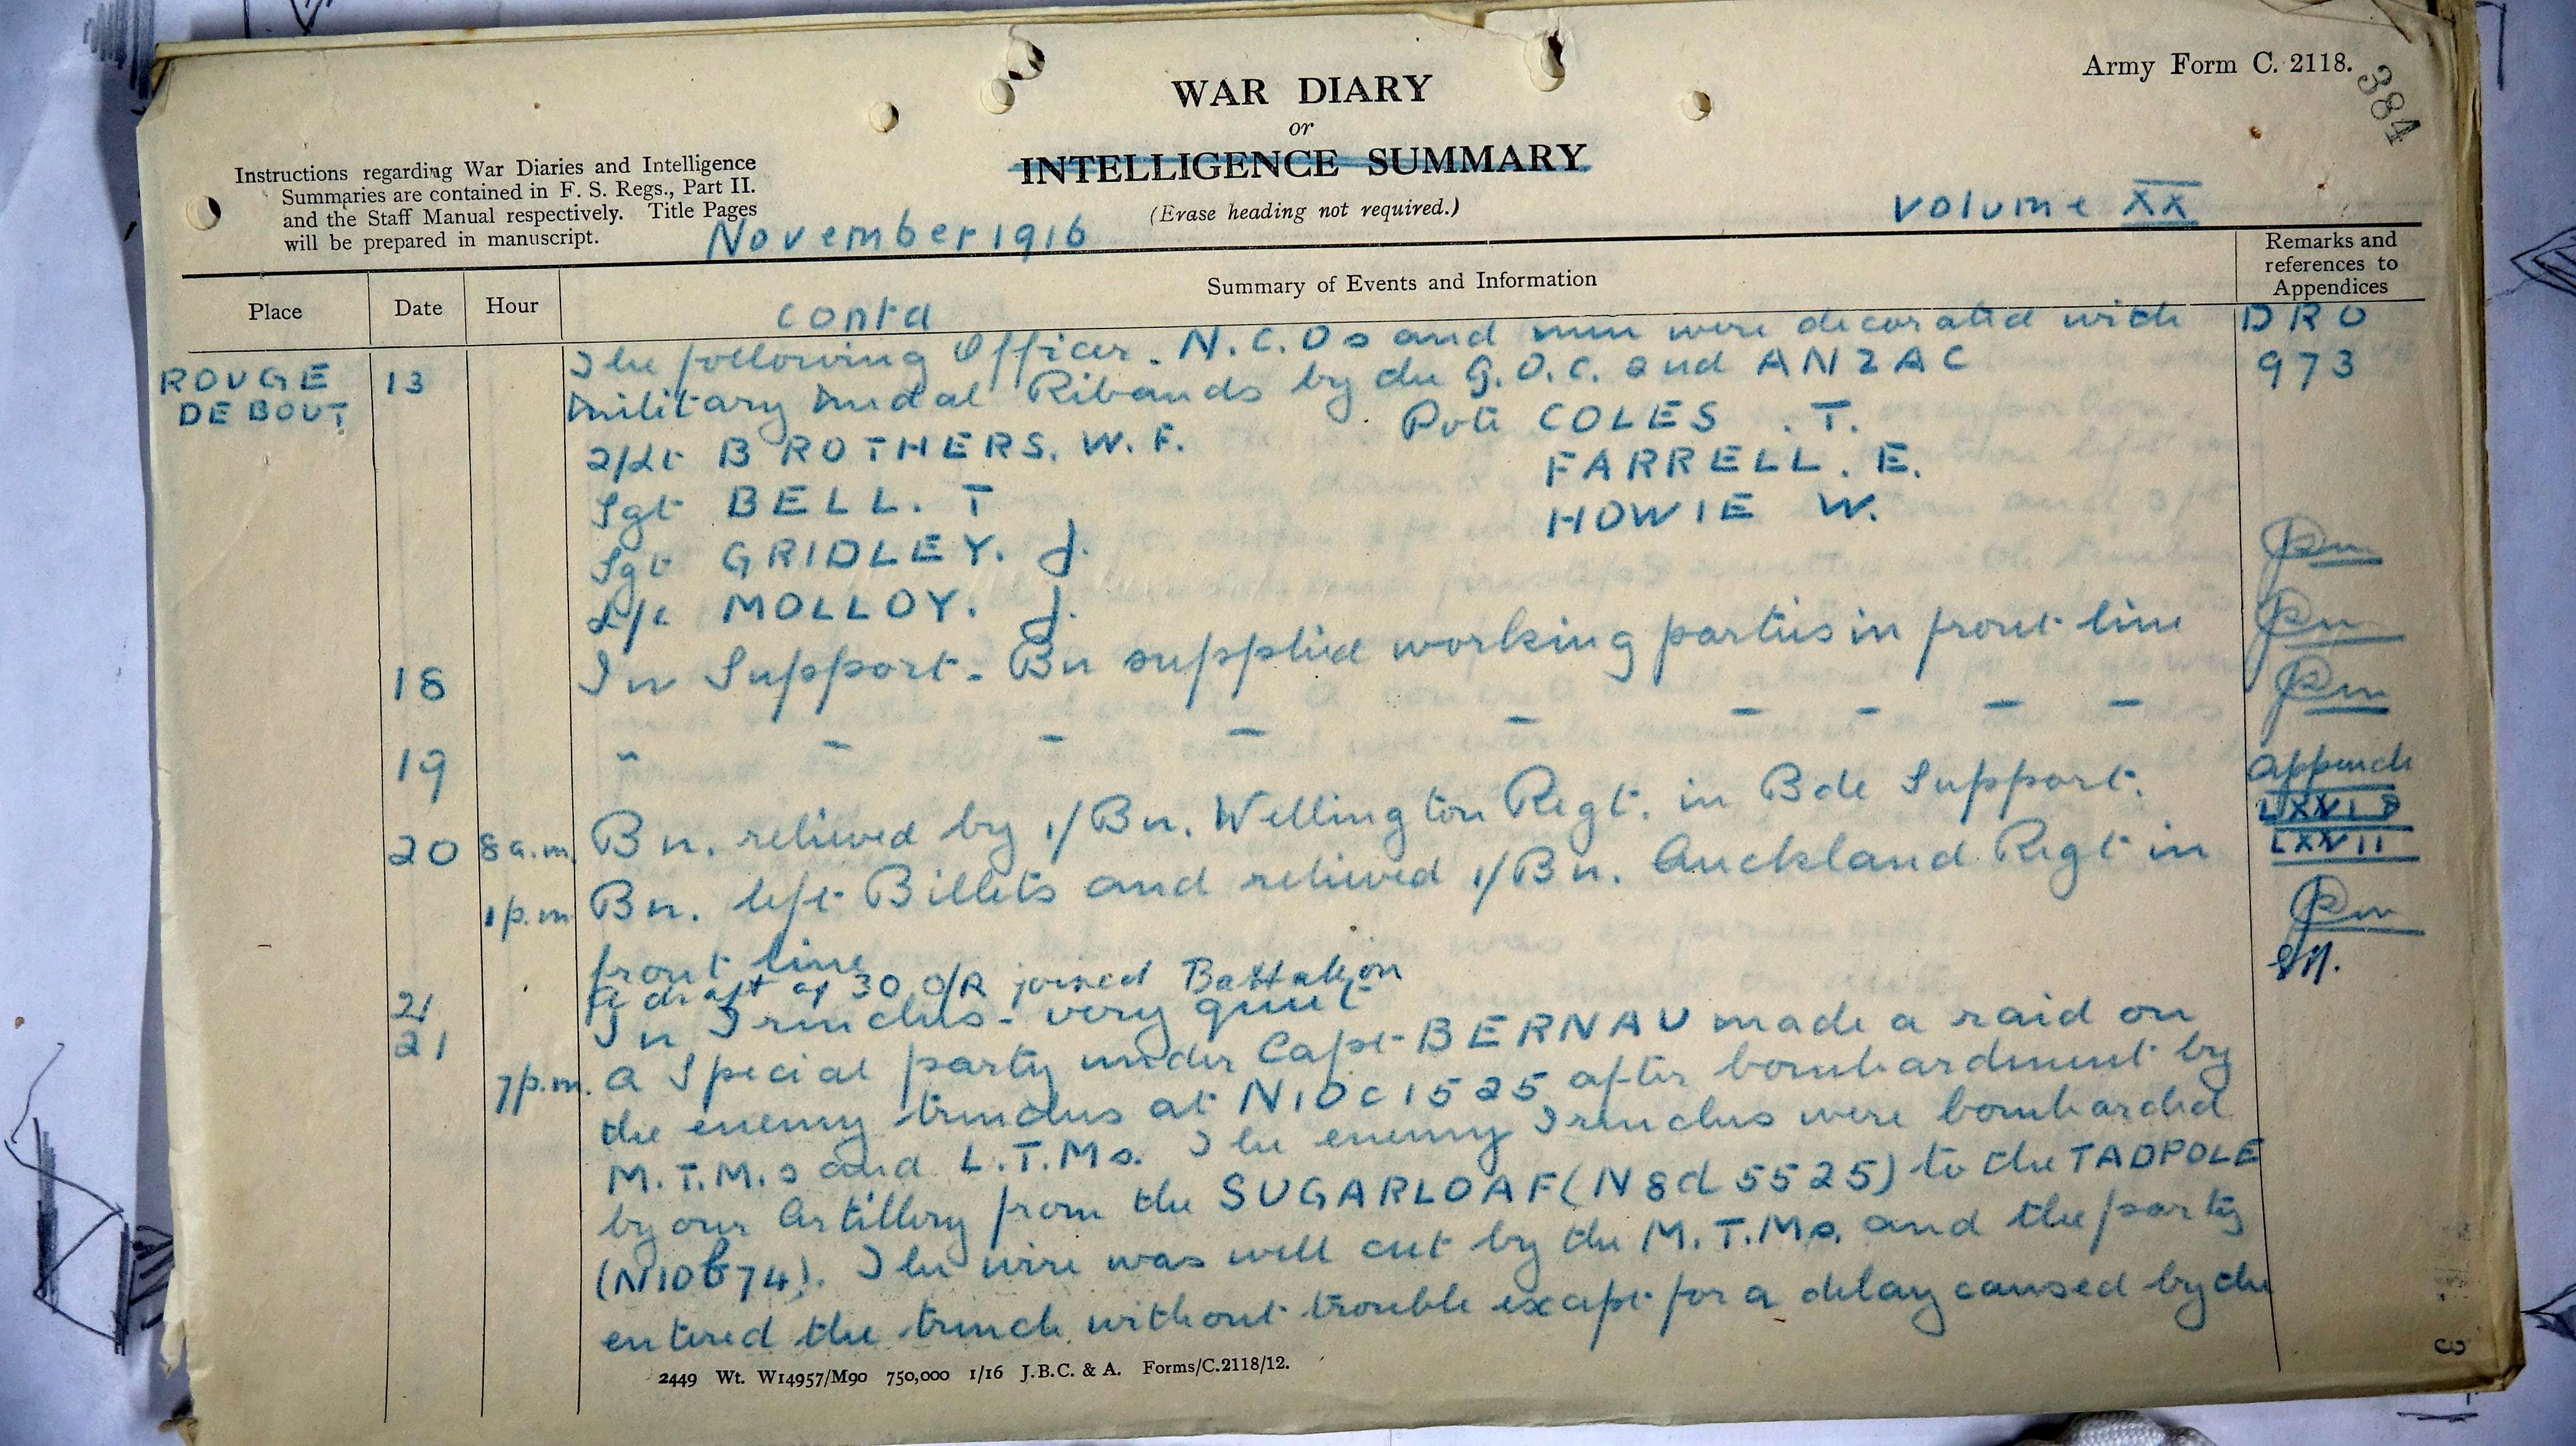 Army Form C. 2118.
384
WAR DIARY
or
INTELLIGENCE SUMMARY
(Erase heading not required.)
Instructions regarding War Diaries and Intelligence
Summaries are contained in F. S. Regs., Part II.
and the Staff Manual respectively. Title Pages
will be prepared in manuscript.
November 1916
Volume XX
Place
Date
Hour
Summary of Events and Information
Remarks and
references to
Appendices
contd
ROUGE
DE BOUT
13
The following Officer. N.C.Os and men were decorated with
DRO
Military Medal Ribands by the G.O.C. 2nd ANZAC
973
2/Lt BROTHERS. W. F.
Pvte COLES . T.
Sgt BELL. T
FARRELL. E.
Sgt GRIDLEY. J.
HOWIE W.
L/c MOLLOY. J.
18 In Support - Bn supplied working parties in front line
19 " - - - - - - - -
20 8 a.m. Bn. relieved by 1/Bn. Wellington Regt. in Bde Support.
Append
LXXVII
1 p.m Bn. left Billets and relieved 1/Bn. Auckland Regt in
front line
21 A draft of 30 O/R joined Battalion
21 In Trenches - very quiet
7 p.m. A Special party under Capt BERNAU made a raid on
the enemy trenches at N10c1525 after bombardment by
M.T.M.s and L.T.Ms. The enemy Trenches were bombarded
by our Artillery from the SUGARLOAF (N8d5525) to the TADPOLE
(N10b74). The wire was well cut by the M.T.Ms. and the party
entered the trench without trouble except for a delay caused by the
2449 Wt. W14957/M90 750,000 1/16 J.B.C. & A. Forms/C.2118/12.
3